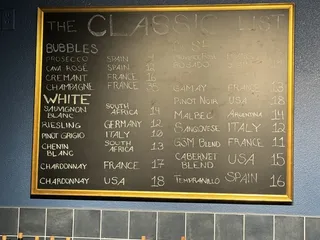 THE CLASSIC LIST
BUBBLES
PROSECCO SPAIN
CAVA ROSÉ SPAIN 12
CREMANT FRANCE 16
CHAMPAGNE FRANCE 35
WHITE
SAUVIGNON BLANC SOUTH AFRICA 14
RIESLING GERMANY 12
PINOT GRIGIO ITALY 10
CHENIN BLANC SOUTH AFRICA 13
CHARDONNAY FRANCE 17
CHARDONNAY USA 18
GAMAY FRANCE
PINOT NOIR USA 18
MALBEC ARGENTINA 14
SANGIOVESE ITALY 12
GSM BLEND FRANCE 11
CABERNET BLEND USA 15
TEMPRANILLO SPAIN 16